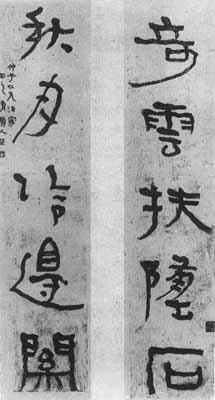 奇雲扶墮石
秋月冷邊關